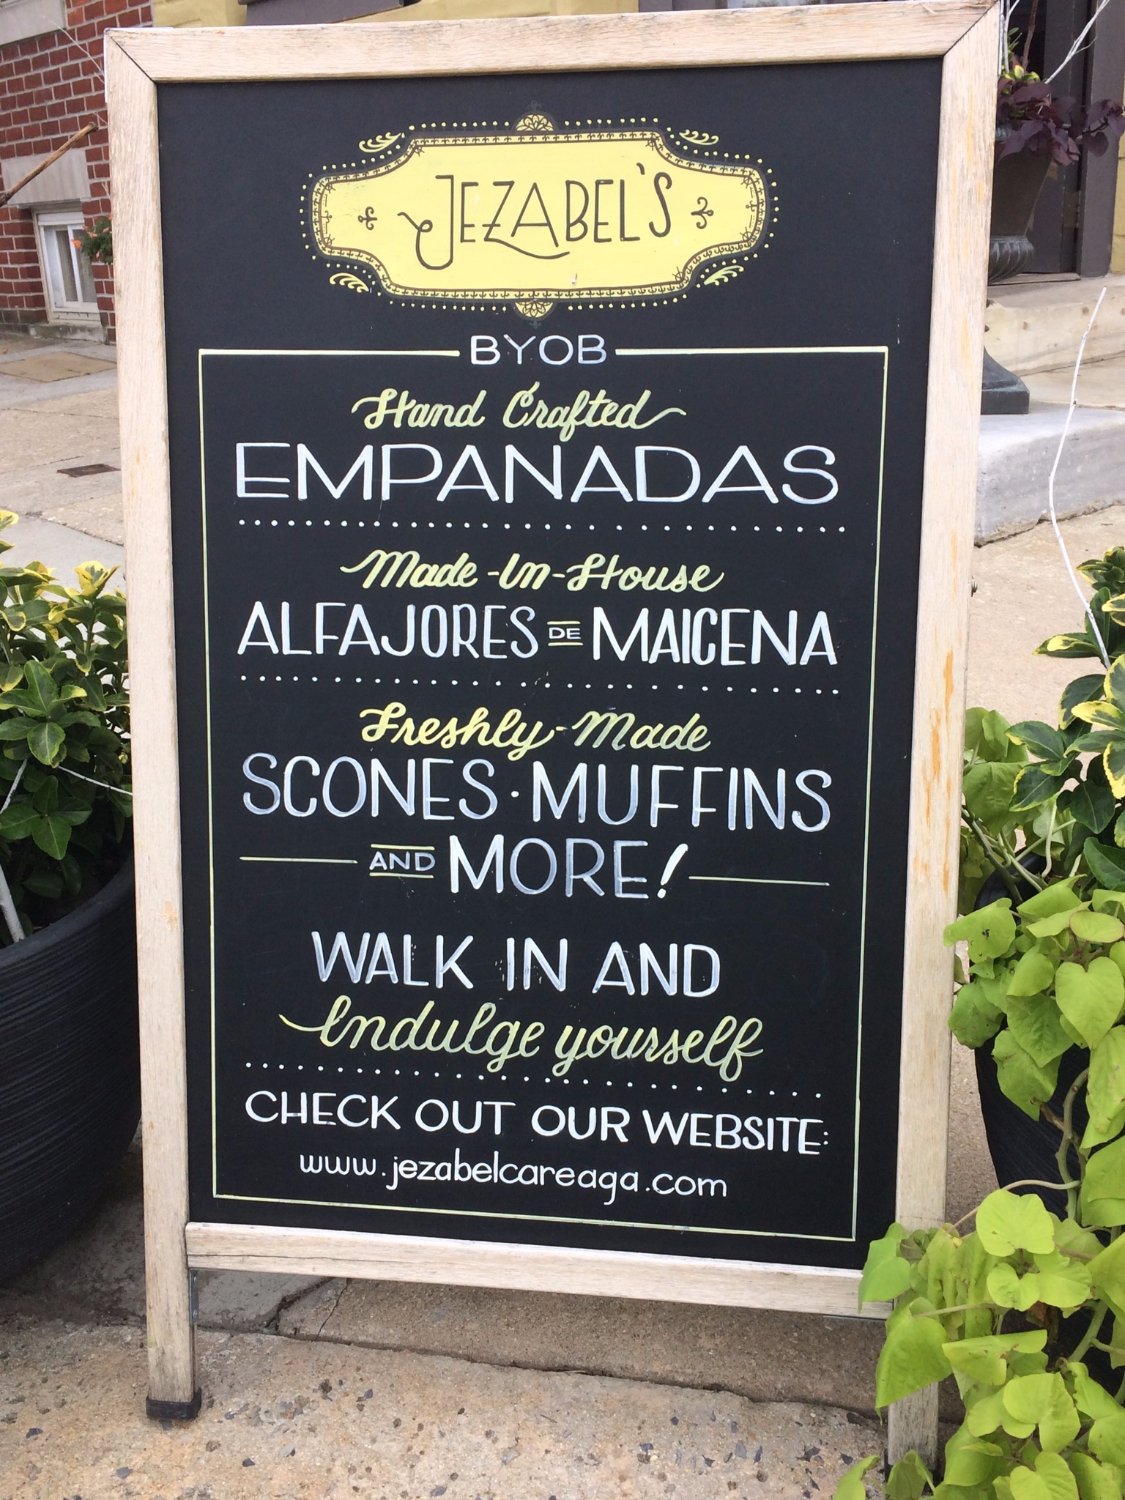 JEZABEL'S
BYOB
Hand Crafted
EMPANADAS
Made-In-House
ALFAJORES DE MAICENA
Freshly-Made
SCONES · MUFFINS
AND MORE!
WALK IN AND
Indulge yourself
CHECK OUT OUR WEBSITE:
www.jezabelcareaga.com